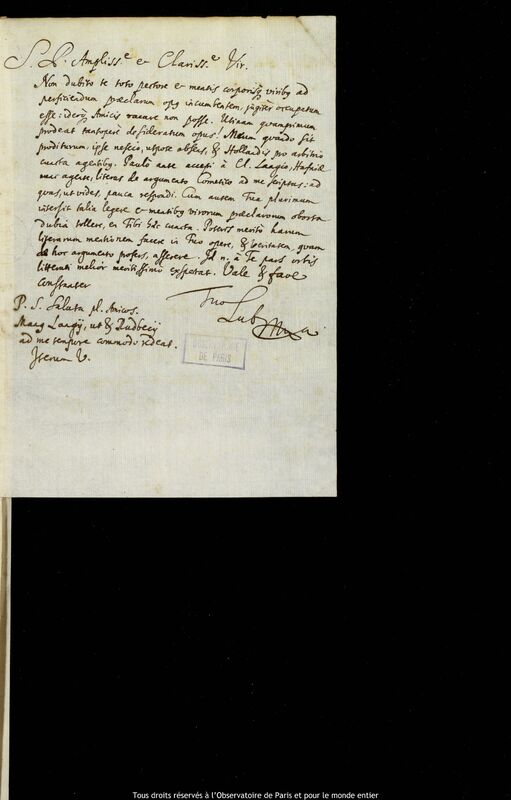 S. P. Ampliss.e & Clariss.e Vir.
Non dubito te toto pectore & mentis corporisq; viribq ad
perficiendum præclarum opq incumbentem, jugiter occupatum
esse: ideoq; Amicis vacare non posse. Utinam quamprimum
prodeat tantopere desideratum opus! Meum quando sit
proditurum, ipse nescio, utpote absens, & Hollandis pro arbitrio
cuncta agentibq. Paulo ante accepi à Cl. Langio, Hafniæ
nunc agente, literas de argumento Cometico ad me scriptas: ad
quas, ut vides, pauca respondi. Cum autem Tua plurimum
intersit talia legere & mentibq virorum præclarorum oborta
dubia tollere, en Tibi hæc cuncta. Poteris merito harum
literarum mentionem facere in Tuo opere, & veritatem, quam
de hoc argumento profers, asserere. Id n. à Te pars orbis
litterati melior meritissimò exspectat. Vale & fave
constanter
Tuo
Lub
P. S. Saluta pl. Amicos.
Langij, ut & Rudbecij
ad me tempore commodo redeat.
Iterum V.
OBSERVATOIRE
DE PARIS
Tous droits réservés à l'Observatoire de Paris et pour le monde entier